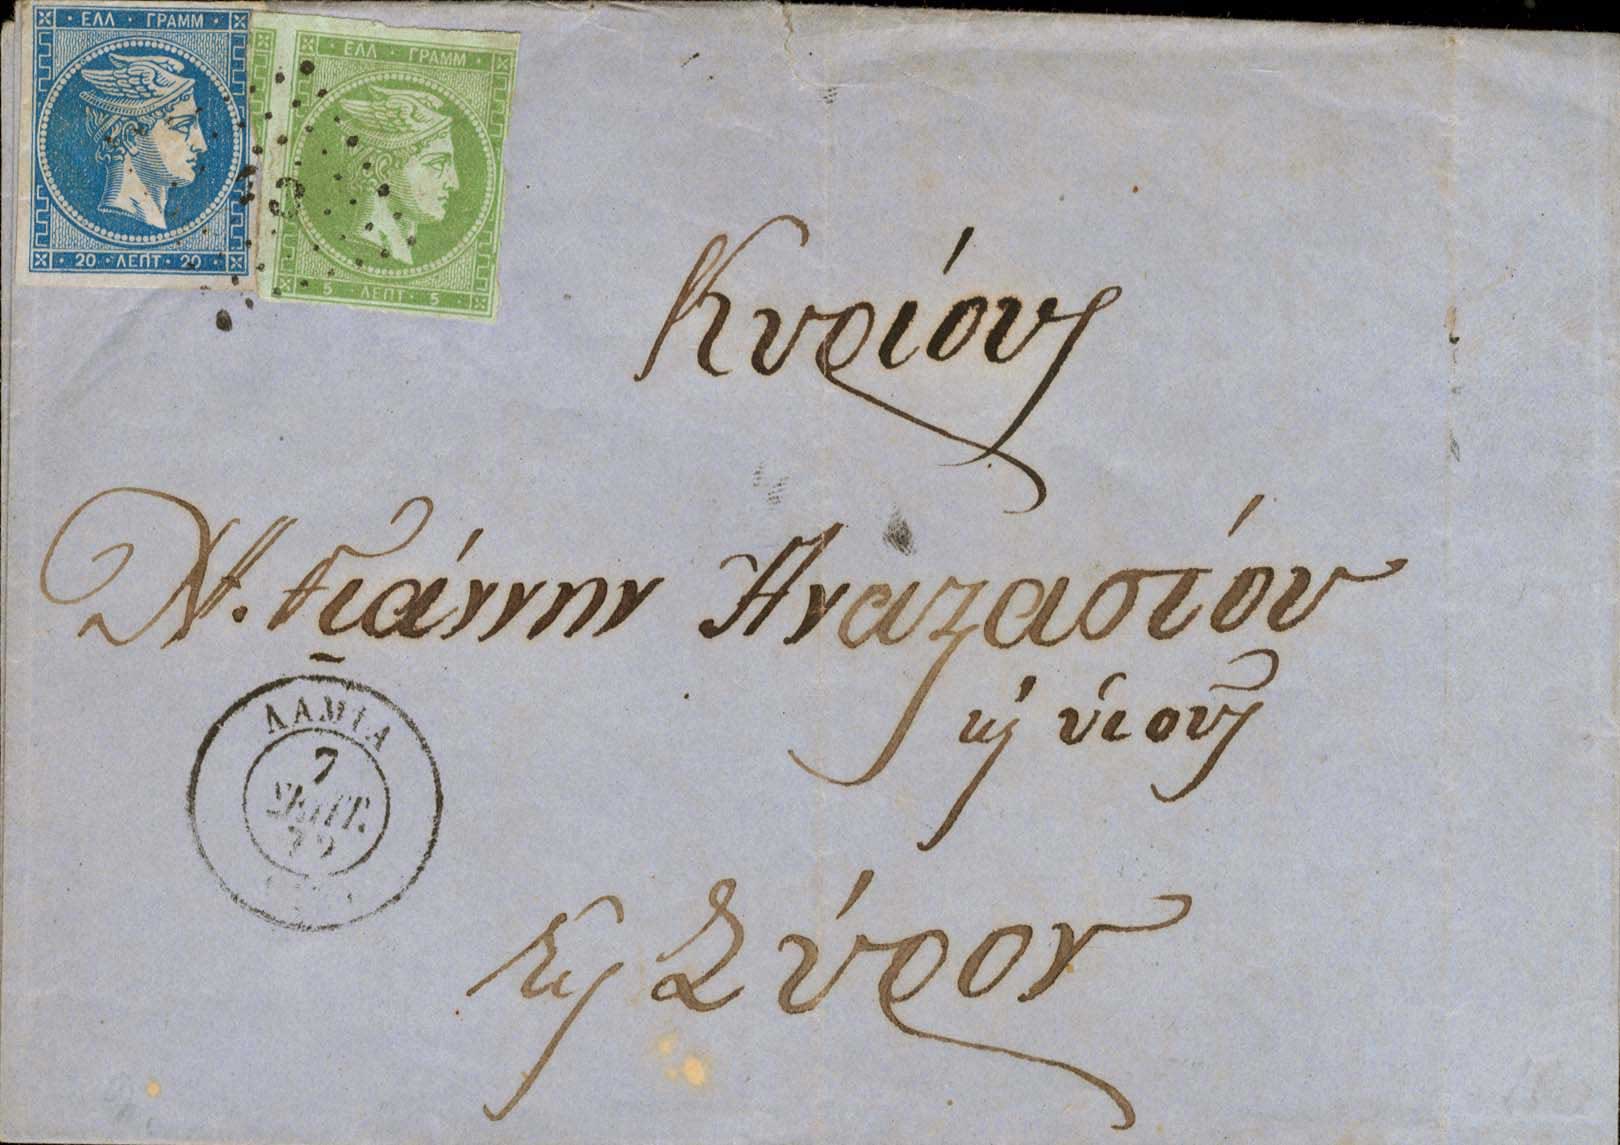 ΕΛΛ · ΓΡΑΜΜ ·
20 · ΛΕΠΤ · 20
ΕΛΛ · ΓΡΑΜΜ ·
5 · ΛΕΠΤ · 5
Κυρίους
Γιάννην Αναστασίου
κ υἱους
ΛΑΜΙΑ
7
ΣΕΠΤ.
72
Εἰς Σύρον